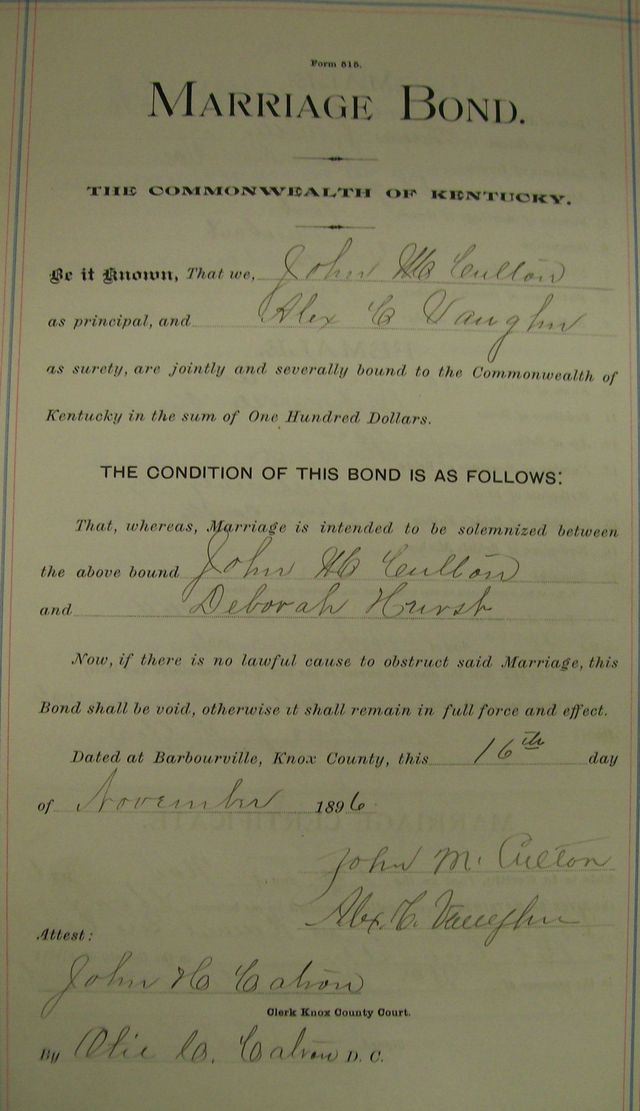 Form 518.
MARRIAGE BOND.
THE COMMONWEALTH OF KENTUCKY.
Be it Known, That we, John Mc Culton
as principal, and Alex C Vaughn
as surety, are jointly and severally bound to the Commonwealth of
Kentucky in the sum of One Hundred Dollars.
THE CONDITION OF THIS BOND IS AS FOLLOWS:
That, whereas, Marriage is intended to be solemnized between
the above bound John Mc Culton
and Deborah Hurst
Now, if there is no lawful cause to obstruct said Marriage, this
Bond shall be void, otherwise it shall remain in full force and effect.
Dated at Barbourville, Knox County, this 16th day
of November 1896.
John M. Culton
Alex. C. Vaughn
Attest:
John H Catron
Clerk Knox County Court.
By Olie Catron D. C.